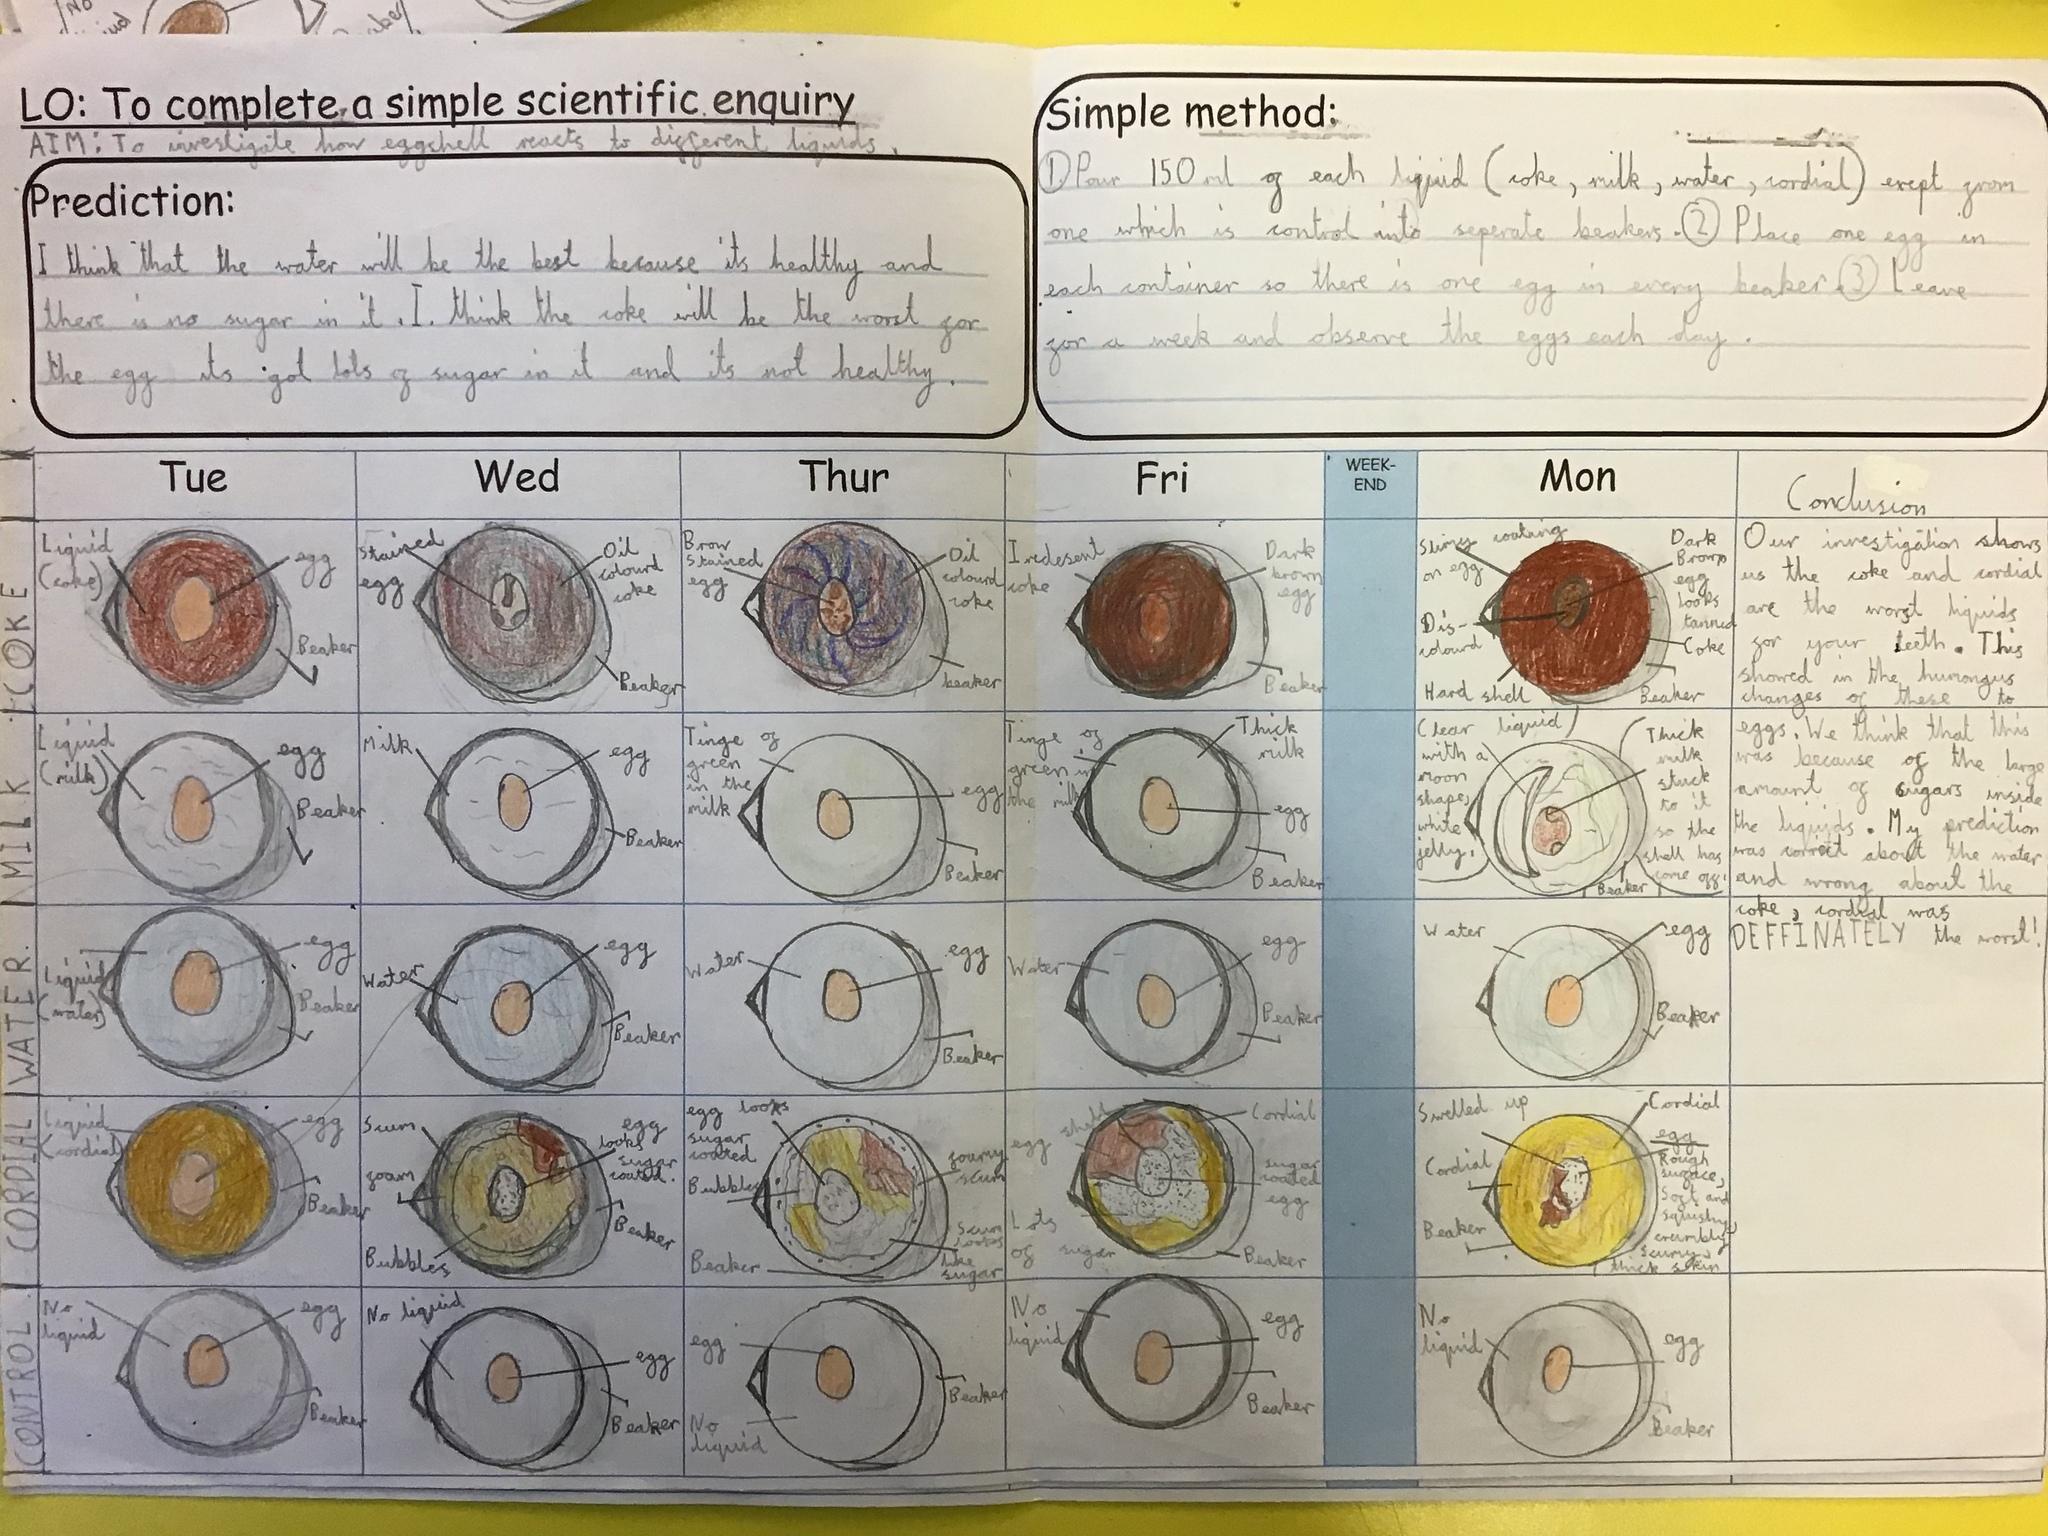 LO: To complete a simple scientific enquiry
AIM: To investigate how eggshell reacts to different liquids.
Prediction:
I think that the water will be the best because its healthy and
there is no sugar in it. I. think the coke will be the worst for
the egg its got lots of sugar in it and its not healthy.
Simple method:
① Pour 150 ml of each liquid (coke, milk, water, cordial) exept from
one which is control into seperate beakers. ② Place one egg in
each container so there is one egg in every beaker. ③ Leave
for a week and observe the eggs each day.
Tue
Wed
Thur
Fri
WEEK-
END
Mon
Conclusion
COKE
Liquid
(coke)
egg
Beaker
Stained
egg
Oil
colourd
coke
Beaker
Brow
stained
egg
Oil
colourd
coke
beaker
Iredesent
coke
Dark
brown
egg
Beaker
Slimy coating
on egg
Dis-
colourd
Hard shell
Dark
Brown
egg
looks
tanned
Coke
Beaker
Our investigation shows
us the coke and cordial
are the worst liquids
for your teeth. This
showed in the humongus
changes of these to
eggs. We think that this
was because of the large
amount of sugars inside
the liquids. My prediction
was correct about the water
and wrong about the
coke, cordial was
DEFFINATELY the worst!
MILK
Liquid
(milk)
egg
Beaker
Milk
egg
Beaker
Tinge of
green
in the
milk
egg
Beaker
Tinge of
green in
the milk
Thick
milk
egg
Beaker
Clear liquid
with a
moon
shape,
white
jelly.
Thick
milk
stuck
to it
so the
shell has
come off.
Beaker
WATER
Liquid
(water)
egg
Beaker
Water
egg
Beaker
Water
egg
Beaker
Water
egg
Beaker
Water
egg
Beaker
CORDIAL
Liquid
(cordial)
egg
Beaker
Scum
foam
Bubbles
egg
looks
sugar
coated.
Beaker
egg looks
sugar
coated
Bubbles
Beaker
foamy
scum
Scum
looks
like
sugar
egg shell
Lots
of sugar
Cordial
sugar
coated
egg
Beaker
Swelled up
Cordial
Beaker
Cordial
egg
Rough
surface,
Soft and
squishy,
crumbly
scumy,
thick skin
CONTROL
No
liquid
egg
Beaker
No liquid
egg
Beaker
egg
Beaker
No
liquid
No
liquid
egg
Beaker
No
liquid
egg
Beaker